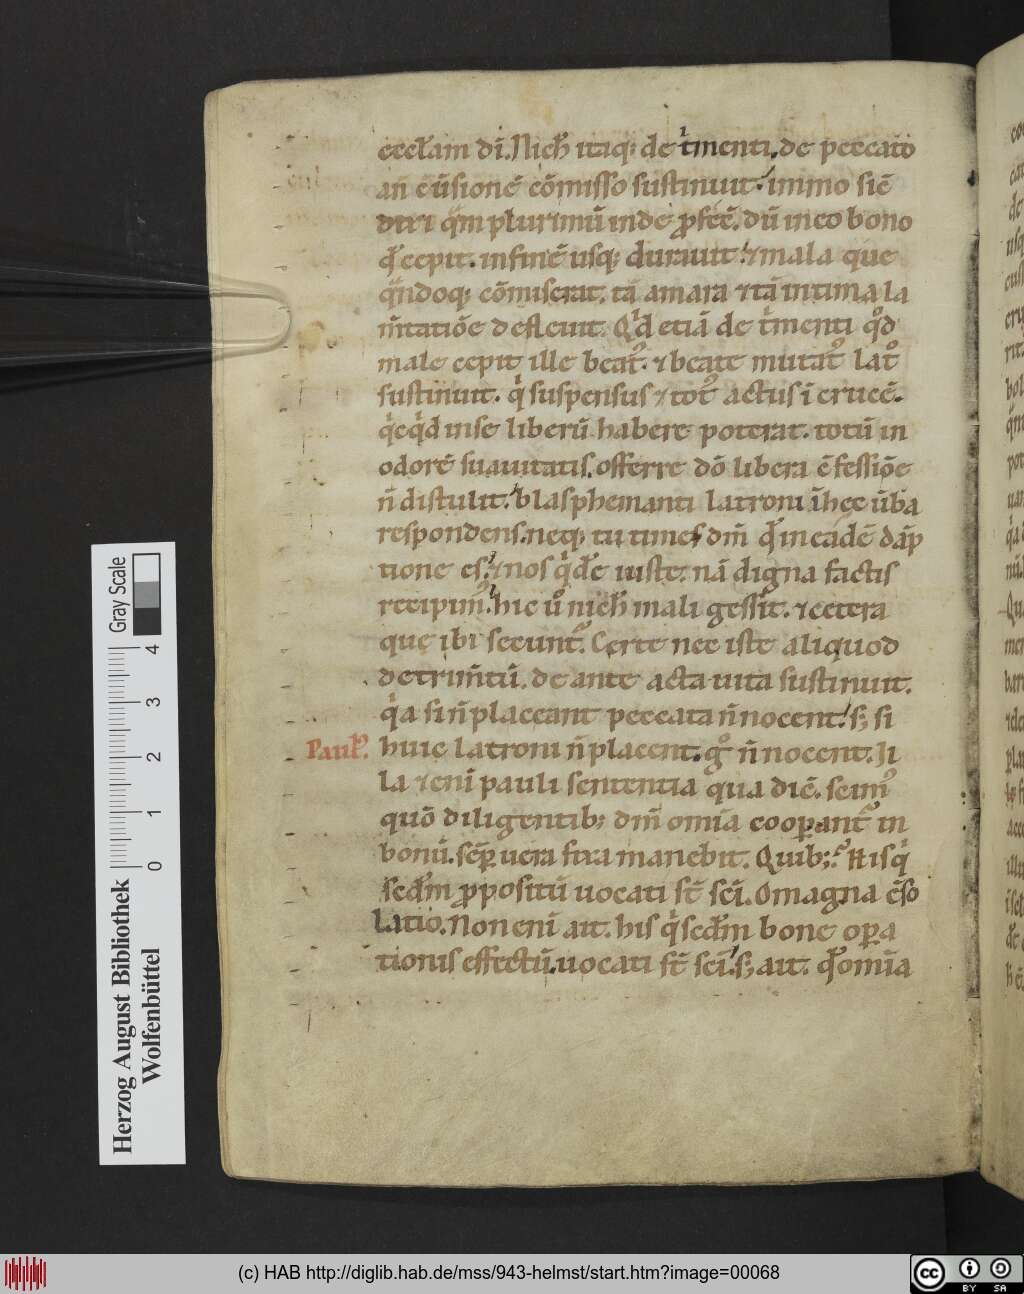 eccl̄am dī. Nich̄ itaq; de t̄menti. de peccato
an̄ c̄ūsionē cōmisso sustinuit. immo sic̄
q̄m plurimū inde ꝓfec̄. dū in eo bono
q̄ cepit. in finē usq; durauit. ⁊ mala que
q̄ndoq; cōmiserat. tā amara ⁊ tā intima la
m̄tatiōe defleuit. Qͥd etiā de t̄menti qͦd
male cepit ille beatꝰ. ⁊ beate mutatꝰ latͦ
sustinuit. qͥ suspensus ⁊ totꝰ actus ī crucē.
qͥcqͥd in se liberū habere poterat. totū in
odorē suauitatis. offerre dō libera c̄fessiōe
n̄ distulit. blasphemanti latroni īhec ūba
respondens. neq; tu times dm̄ q̄ in eadē dāp
tione es. ⁊ nos qͥdē iuste. nā digna factis
recipimꝰ. hic ūͦ nich̄ mali gessit. ⁊ cetera
que ibi secuntꝰ. Certe nec iste aliquod
detrim̄tū. de ante acta uita sustinuit.
qͥa si n̄ placeant peccata n̄ nocent. s; si
Paulꝰ. huic latroni n̄ placent. gͦ n̄ nocent. Il
la ⁊enī pauli sententia qua dic̄. scimꝰ
quō diligentib; dm̄ omīa cooꝑantꝰ in
bonū. sēꝑ uera fixa manebit. Quib;? His qͥ
secd̄m ꝓpositū uocati st̄ scī. O magna c̄so
latio. Non enī ait. his qͥ secd̄m bone oꝑa
tionis effectū. uocati st̄ scī. s; ait. q̄ omīa
Herzog August Bibliothek
Wolfenbüttel
Gray Scale
0 1 2 3 4
(c) HAB http://diglib.hab.de/mss/943-helmst/start.htm?image=00068
cc BY SA